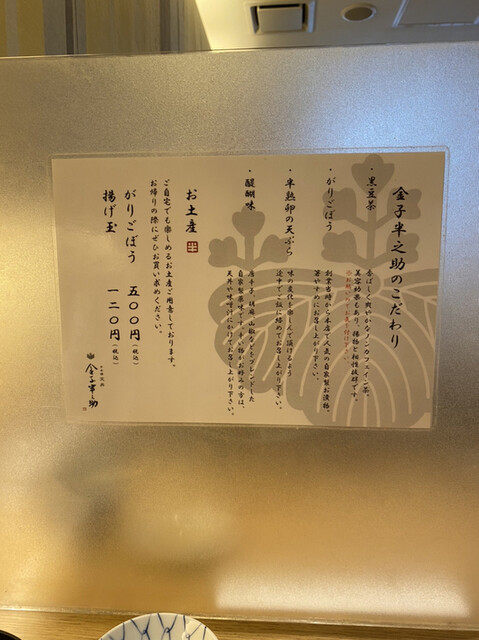 金子半之助のこだわり
・黒豆茶
香ばしく爽やかなノンカフェイン茶。
美容効果もあり、揚物と相性抜群です。
・がりごぼう
創業当時から本店で人気の自家製お漬物。
箸やすめにお召し上がり下さい。
・半熟卵の天ぷら
味の変化を楽しんで頂けるよう
途中でご飯に絡めてお召し上がり下さい。
・醍醐味
唐辛子、胡麻、山椒などをブレンドした
自家製薬味です。辛い物がお好みの方は、
天丼や味噌汁にかけてお召し上がり下さい。
お土産
半
ご自宅でも楽しめるお土産ご用意しております。
お帰りの際にぜひお買い求めください。
がりごぼう 五〇〇円(税込)
揚げ玉 一二〇円(税込)
金子半之助